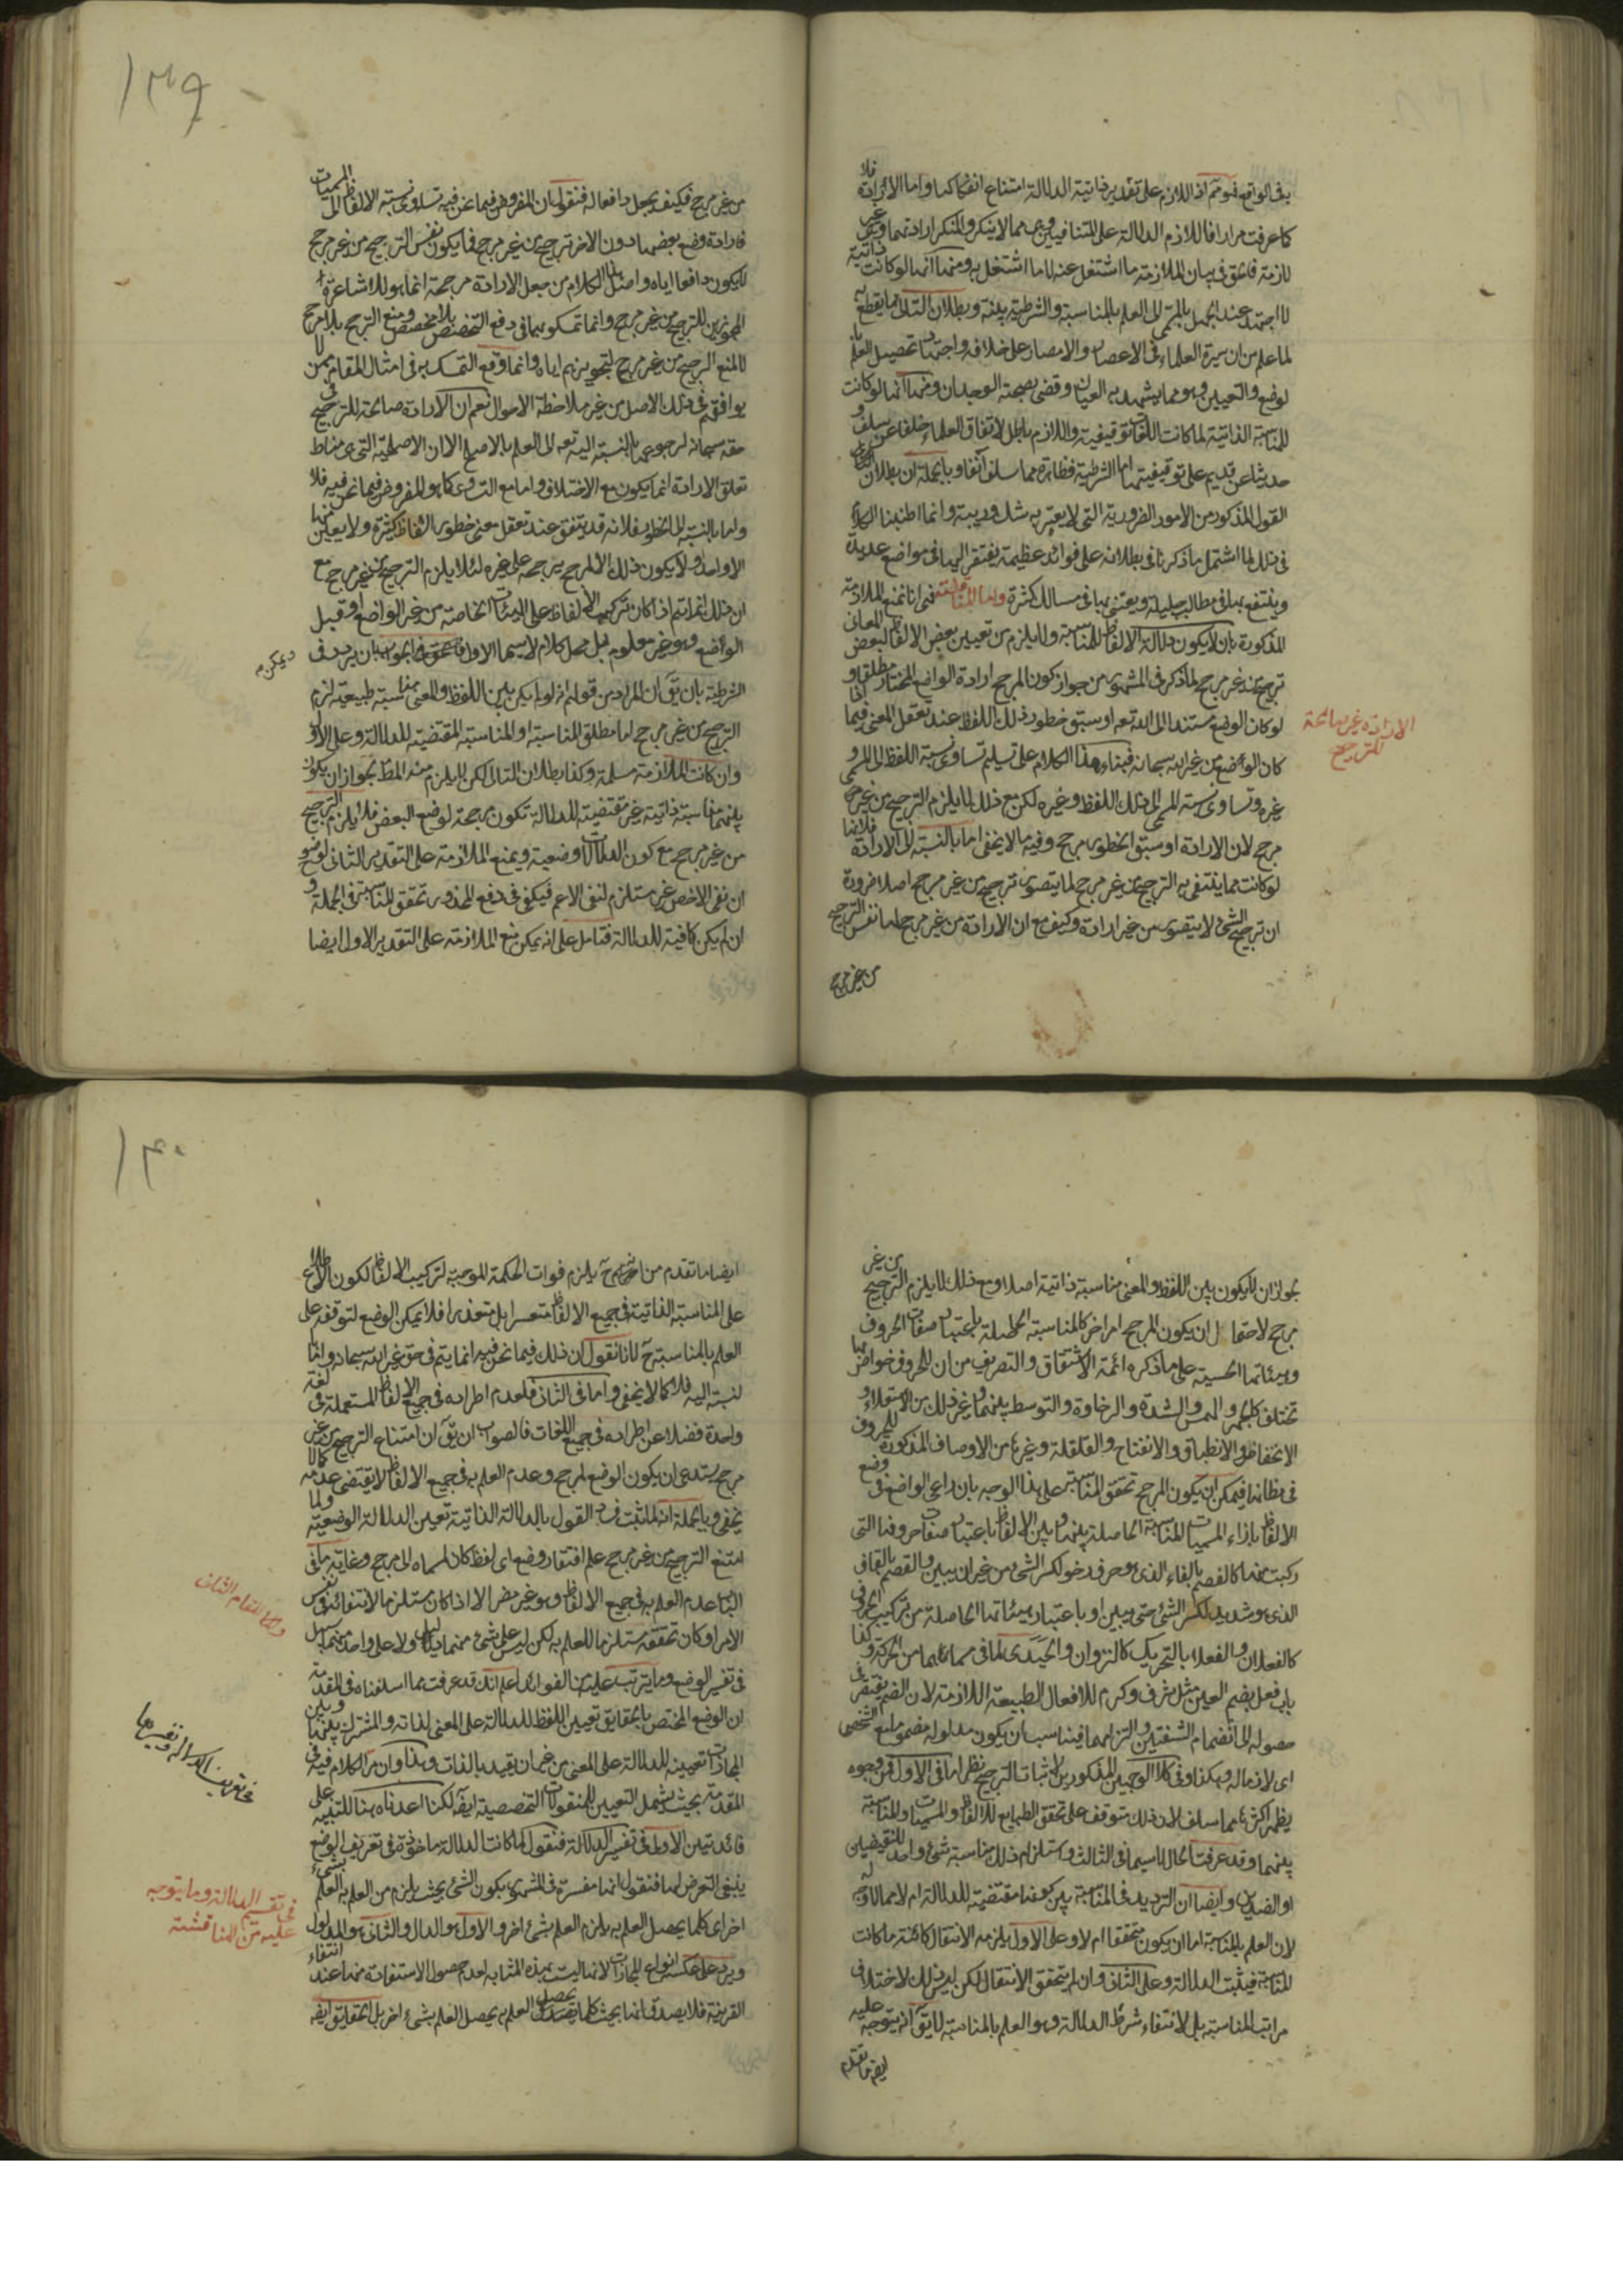 في الواقع فهو ثم اذ اللازم على تقدير ذاتية الدلالة امتناع انفكاكها واما الارادة فلا
كما عرفت مرارا فاللازم الدلالة على المتنافيين وهي مما لا ينكر والمنكر ارادتهما وهي غير
لازمة فاشق في بيان الملازمة ما اشتغل عنه لا ما اشتغل به ومنها انها لو كانت ذاتية
لما اجتهد عند الجهل بالمسمى الى العلم بالمناسبة والشرطية بينة وبطلان التالي مما يقطع به
لما علم من ان سيرة العلماء في الاعصار والامصار على خلافه واجتهادهم تحصيل العلم با
لوضع والتعيين وهو مما يشهد به العيان وقضى بصحته الوجدان ومنها انها لو كانت
للمناسبة الذاتية لما كانت اللغات توقيفية واللازم باطل لاتفاق العلماء خلفا عن سلف و
حديثا عن قديم على توقيفيتها اما الشرطية فظاهرة مما سلف آنفا وبالجملة ان بطلان
القول المذكور من الامور الضرورية التي لا يعتريه شك وريبة وانما اطنبنا الكلام
في ذلك لما اشتمل ما ذكرنا في بطلانه على فوائد عظيمة يفتقر اليها في مواضع عديدة
وينتفع بها في مطالب جليلة ويعتنى بها في مسالك كثيرة واما المقالة فهي انا نمنع الملازمة
المذكورة بان لا يكون دلالة الالفاظ للمناسبة ولا يلزم من تعيين بعض الالفاظ لبعض المعاني
ترجيح من غير مرجح لما ذكر في المشهور من جواز كون المرجح ارادة الواضع المختار مطلقا او
لو كان الوضع مستندا الى الله تعه او سبق خطور ذلك اللفظ عند تعقل المعنى فيما اذا
كان الواضع من غير الله سبحانه فبناء هذا الكلام على تسليم تساوى نسبة اللفظ الى المسمى و
غيره وتساوى نسبة المسمى الى ذلك اللفظ وغيره لكن مع ذلك لا يلزم الترجيح من غير
مرجح لان الارادة او سبق الخطور مرجح وفيه ما لا يخفى اما بالنسبة الى الارادة فلانها
لو كانت مما ينتفي به الترجيح من غير مرجح لما يتصور ترجيح من غير مرجح اصلا ضرورة
ان ترجيح الشيء لا يتصور من غير ارادة وكيف مع ان الارادة من غير مرجح لها نفس الترجيح
من غير مرجح
الارادة غير صالحة
للترجيح
١٣٩
من غير مرجح فكيف يجعل دافعا له فنقول ان المفروض فيما نحن فيه تساوى نسبة الالفاظ الى المسميات
فارادة وضع بعضها دون الاخر ترجيح من غير مرجح فما يكون نفس الترجيح من غير مرجح
لا يكون دافعا اياه واصل الكلام من جعل الارادة مرجحة انما هو للاشاعرة
المجوزين للترجيح من غير مرجح وانما تمسكوا بها في دفع التخصيص بلا مخصص ومنع الترجح بلا مرجح
لا لمنع الترجيح من غير مرجح لتجويزهم اياه وانما وقع التمسك به في امثال المقام ممن لا
يوافقهم في ذلك الاصل من غير ملاحظة الاصول نعم ان الارادة صالحة للترجيح في
حقه سبحانه لرجوعها بالنسبة اليه تعه الى العلم بالاصلح الا ان الاصلحية التي هي مناط
تعلق الارادة انما يكون مع الاختلاف واما مع التساوى كما هو المفروض فيما نحن فيه فلا
واما بالنسبة الى الخطور فلانه قد يتفق عند تعقل معنى خطور الفاظ كثيرة ولا يعين منها
الا واحدا ولا يكون ذلك الا لمرجح يرجحه على غيره لئلا يلزم الترجيح من غير مرجح مع
ان ذلك انما يتم اذا كان تركيب الالفاظ على الهيئات الخاصة من غير الواضع او قبل
الوضع وهو غير معلوم بل محل كلام لاسيما الاول فالحق في الجواب ان يردد في
الشرطية بان يقال ان المراد من قولهم انه لو لم يكن بين اللفظ والمعنى مناسبة طبيعية لزم
الترجيح من غير مرجح اما مطلق المناسبة او المناسبة المقتضية للدلالة وعلى الاول
وان كانت الملازمة مسلمة وكذا بطلان التالي لكن لا يلزم منه المط لجواز ان يكون
بينهما مناسبة ذاتية غير مقتضية للدلالة تكون مرجحة لوضع البعض فلا يلزم الترجيح
من غير مرجح مع كون الدلالات وضعية ويمنع الملازمة على التقدير الثاني لوضوح
ان نفى الاخص غير مستلزم لنفى الاعم فيكفى في دفع المحذور تحقق المناسبة في الجملة و
ان لم يكن كافية للدلالة فتامل على انه يمكن منع الملازمة على التقدير الاول ايضا
ويمكن م
لجواز ان لا يكون بين اللفظ والمعنى مناسبة ذاتية اصلا ومع ذلك لا يلزم الترجيح من غير
مرجح لاحتمال ان يكون المرجح امرا خر كالمناسبة الحاصلة باعتبار صفات الحروف
وهيئاتها الحسية على ما ذكره ائمة الاشتقاق والتصريف من ان للحروف خواص بها
تختلف كالجهر والهمس والشدة والرخاوة والتوسط بينهما وغير ذلك من الاستعلاء و
الانخفاظ والانطباق والانفتاح والقلقلة وغيرها من الاوصاف المذكورة للحروف
في مظانها فيمكن ان يكون المرجح تحقق المناسبة على هذا الوجه بان راعى الواضع في وضع
الالفاظ بازاء المسميات المناسبة الحاصلة بينها وبين الالفاظ باعتبار صفات حروفها التي
ركبت منها كالفصم بالفاء الذي هو حرف رخو لكسر الشئ من غير ان يبين والقصم بالقاف
الذي هو شديد لكسر الشئ حتى يبين او باعتبار هيئاتها الحاصلة من تركيب الحروف
كالفعلان والفعلا بالتحريك كالنزوان والحيدى لما في مسماهما من الحركة وكذا
باب فعل بضم العين مثل شرف وكرم للافعال الطبيعة اللازمة لان الضم يقتضى في
حصوله الى انضمام الشفتين والتزامهما فيناسب ان يكون مدلوله مضموما مع الشخص
اى لازما له وهكذا وفي كلا الوجهين المذكورين لاثبات الترجيح نظر اما في الاول فمن وجوه
يظهر اكثرها مما سلف لان ذلك متوقف على تحقق الطبايع للالفاظ والمسميات والمناسبة
بينهما وقد عرفت الحال لاسيما في الثالث واستلزام ذلك مناسبة شئ واحد للنقيضين
او الضدين وايضا ان الترديد في المناسبة بين كونها مقتضية للدلالة ام لا مما لا وجه له
لان العلم بالمناسبة اما ان يكون متحققا ام لا وعلى الاول يلزمه الانتقال كائنة ما كانت
المناسبة فيثبت الدلالة وعلى الثاني وان لم يتحقق الانتقال لكن ليس ذلك لاختلاف
مراتب المناسبة بل لانتفاء شرط الدلالة وهو العلم بالمناسبة لا يقال انه يتوجه عليه
ايضا ما تقدم
١٤٠
ايضا ما تقدم من انه ح يلزم فوات الحكمة الموجبة لتركيب الالفاظ لكون الاطلاع
على المناسبة الذاتية في جميع الالفاظ متعسرا بل متعذرا فلا يمكن الوضع لتوقفه على
العلم بالمناسبة ح لانا نقول ان ذلك فيما نحن فيه انما يتم في حق غير الله سبحانه واما
لنسبة اليه فلا كما لا يخفى واما في الثاني فلعدم اطراده في جميع الالفاظ المستعملة في لغة
واحدة فضلا عن اطراده في جميع اللغات فالصواب ان يقال ان امتناع الترجيح من غير
مرجح يستدعى ان يكون الوضع لمرجح وعدم العلم به في جميع الالفاظ لا يقتضى عدمه كما لا
يخفى وبالجملة انه لما ثبت فساد القول بالدلالة الذاتية تعين الدلالة الوضعية ولما
امتنع الترجيح من غير مرجح علم افتقار وضع اى لفظ كان لمسماه الى مرجح وغاية ما في
الباب عدم العلم به في جميع الالفاظ وهو غير مضر الا اذا كان مستلزما لانتفائه في نفس
الامر او كان تحققه مستلزما للعلم به لكن ليس على شئ منهما دليل ولا على واحد منهما سبيل
في تفسير الوضع وما يترتب عليه من الفوائد اعلم انك قد عرفت مما اسلفناه في المقدمة
ان الوضع المختص بالحقايق تعيين اللفظ للدلالة على المعنى لذاته والمشترك بينها وبين
المجازات تعيينه للدلالة على المعنى من غير ان يقيد بالذات وهذا وان مر الكلام فيه في
المقدمة بحيث يشمل التعيين للمنقولات التخصصية ايضا لكنا اعدناه هنا للتنبيه على
فائدتين الاولى في تفسير الدلالة فنقول لما كانت الدلالة ماخوذة في تعريف الوضع
ينبغى التعرض لها فنقول انها مفسرة في المشهور بكون الشئ بحيث يلزم من العلم به العلم بشئ
اخر اى كلما يحصل العلم به يلزم العلم بشئ اخر والاول هو الدال والثاني هو المدلول
ويرد على عكسه انواع المجازات لانها ليست بهذه المثابة لعدم حصول الاستفادة منها عند انتفاء
القرينة فلا يصدق انها بحيث كلما يحصل العلم به يحصل العلم بشئ اخر بل الحقايق ايضا
واما المقام الثاني
في تعريف الدلالة وتفسيرها
في تفسير الدلالة وما يتوجه
عليه من المناقشة